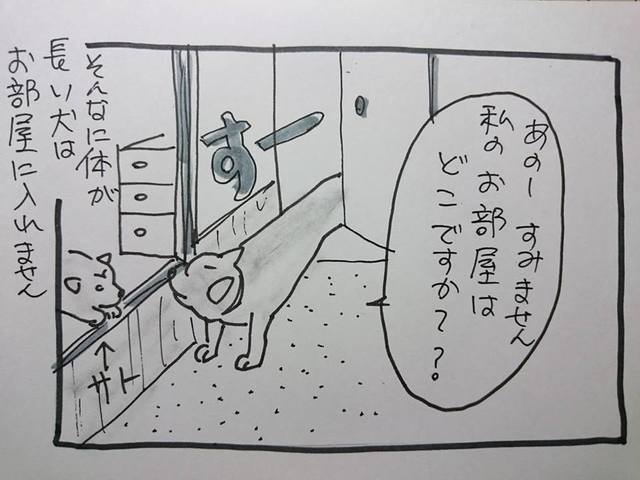 あのー すみません
私のお部屋は
どこですか??。
すー
そんなに体が
長い犬は
お部屋に入れません
サト